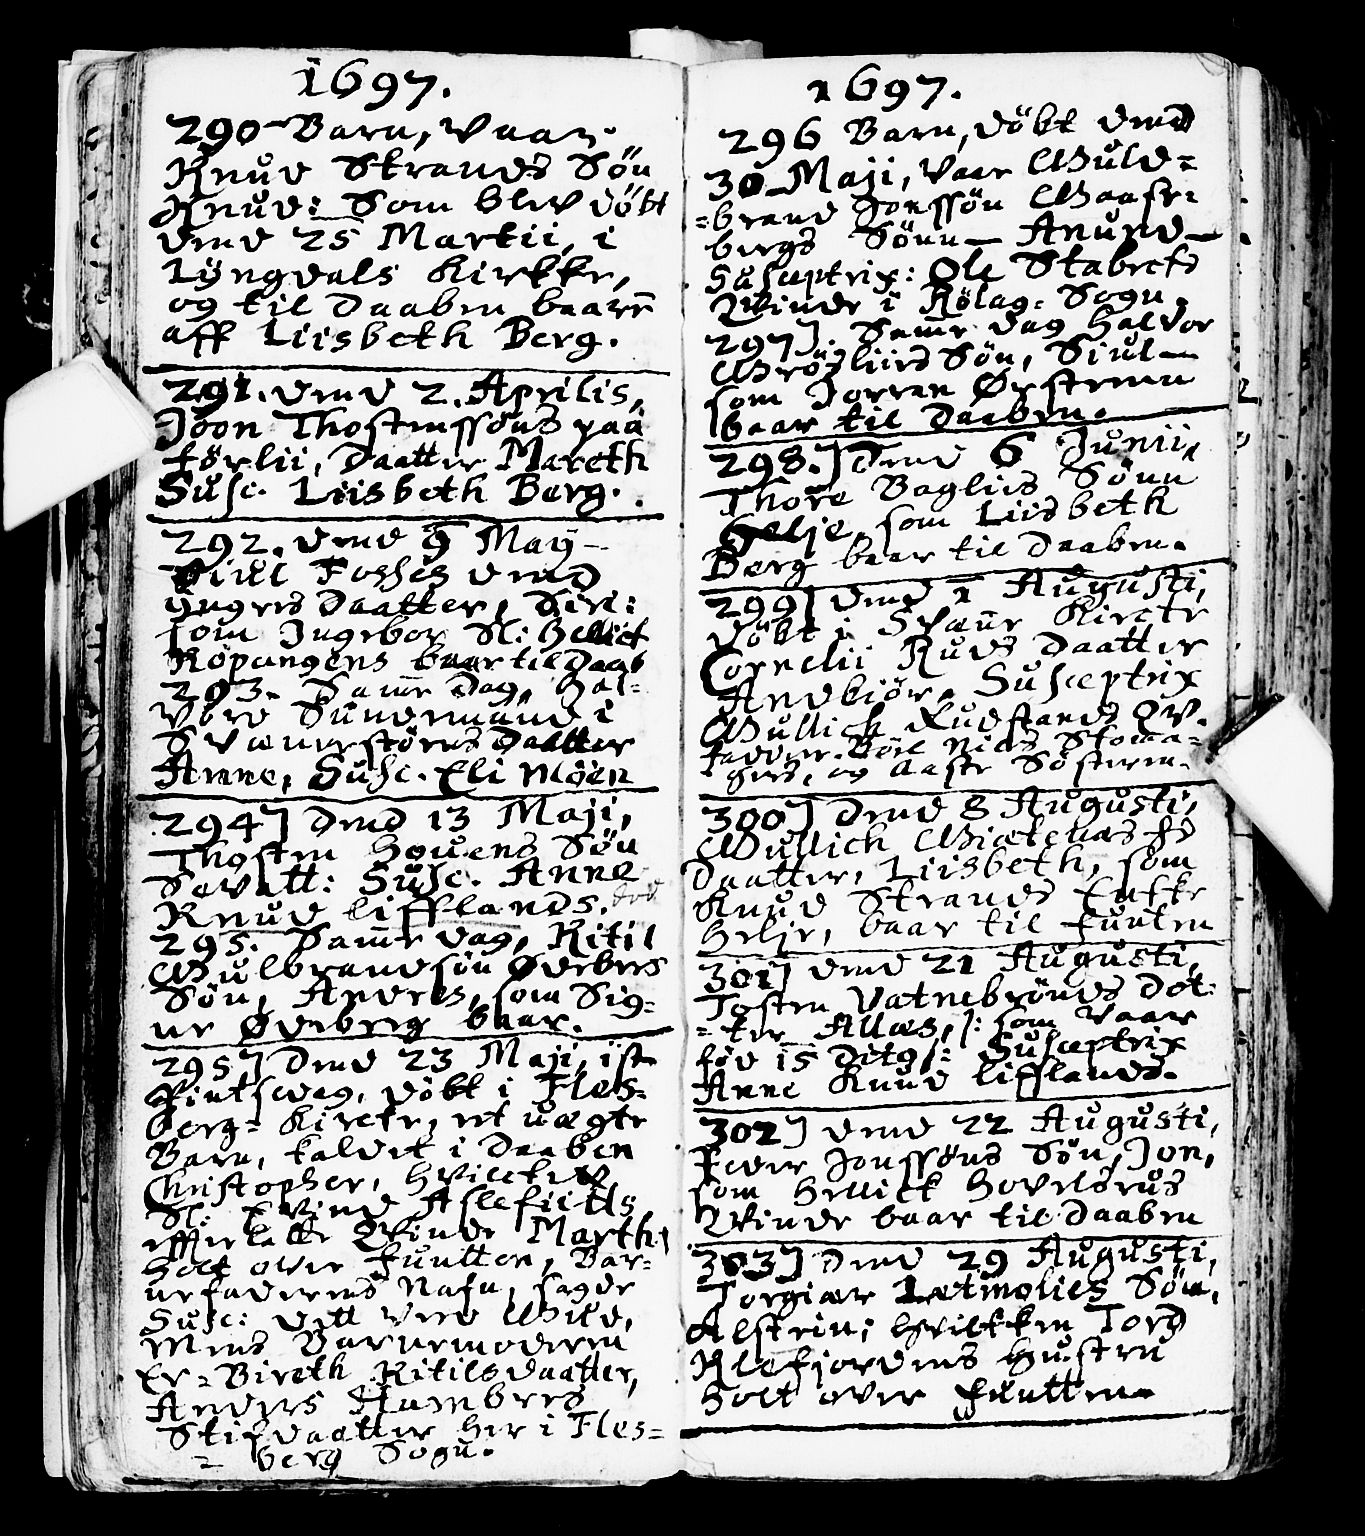 1697.
290 Barn, Vaar
Knud Strands Sön
Knud: Som blev döbt
dend 25 Martii, i
Lyngdals Kirkke,
og til Daaben baaren
aff Liisbeth Berg.
291. dend 2. Aprilis,
Joon Thostenssöns paa
förlii, Daatter Mareth
Susc. Liisbeth Berg.
292. dend 9 May
Siul Fosses dend
yngres Daatter, Siri:
som Ingebor Sl: Hellick
Köpangens baar til Daab
293. Same Dag, Hal-
vord Sundemand i
Svænestörens Daatter
Anne, Susc. Eli Möen
294] Dend 13 Maji,
Thosten Houens Sön
Sevatt: Susc. Anne
Knud Lifflands. död
295. Same dag, Kitil
Gulbrandsön Ødebers
Sön, Anders, som Sig-
ne Ødeberg baar.
295] Dend 23 Maji, 1ste
Pintsedag, döbt i Fles-
berg-Kircke, et uægte
Barn, kaldet i Daaben
Christopher, hvilcket
Sl: Evind Aslefiitts
effterlatte Qvinde Marthe
holt over Funtten, Bar-
nefaderens Nafn, sagde
Susc: dett vere
Mens Barnemoderen
Er-Bireth Kitilsdaatter,
Anders Humbers
Stifdaatter her i Fles-
berg Sogn.
1697.
296 Barn, döbt dend
30 Maji, Vaar Guld-
brand Jonssön Gaaser-
bergs Sönn Anund
Susceptrix: Ole Stabecks
Qvinde i Rölag: Sogn.
297]. Same dag Haldor
Gröslies Sön, Siul
som Jorran Ørsteren
baar til Daaben.
298.] Dend 6 Junii,
Thore Baglies Sönn
Gelje, som Liisbeth
Berg baar til Daaben.
299] dend 1 Augusti,
döbt i Svæne Kircke
Cornelii Ruds Daatter
Andbiör. Susceptrix
Gullich Rudstands Qv.
fadder. Böel Niels Stoma-
gers, og Aaste Søsteren.
300] Dend 8 Augusti,
Gullich
Daatter, Liisbeth, som
Knud Strands Encke
Helje, baar til Funten
301] dend 21 Augusti,
Tosten Vatnebrönds Dot-
-ter Allas, /: som vaar
föd 15 Dito/: Susceptrix
Anne Knud Lifflands.
302] dend 22 Augusti,
Peder Jonssöns Sön, Jon,
som Hellick Hovelsrus
Qvinde baar til Daaben
303] Dend 29 Augusti,
Torgiær Lætmolies Sön,
Alstein; hvilkken Torg
Klefjordens Hustru
holt over Funtten